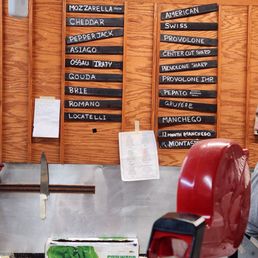 MOZZARELLA
CHEDDAR
PEPPERJACK
ASIAGO
OSSAU IRATY
GOUDA
BRIE
ROMANO
LOCATELLI
AMERICAN
SWISS
PROVOLONE
CENTER CUT SHARP
PROVOLONE SHARP
PROVOLONE IMP.
PEPATO
GRUYÈRE
MANCHEGO
12 MONTH MANCHEGO
MONTASI